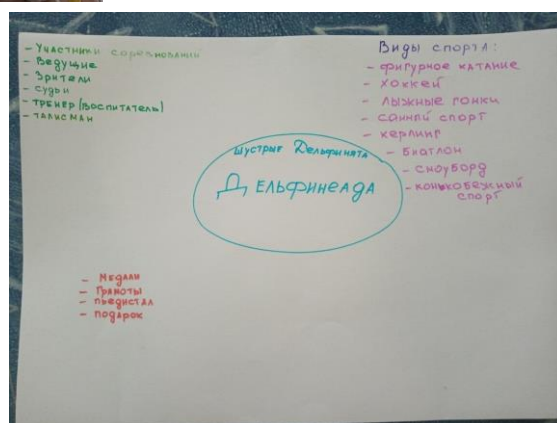 - Участники соревнований
- Ведущие
- Зрители
- Судьи
- тренер (воспитатель)
- талисман
Виды спорта:
- фигурное катание
- хоккей
- лыжные гонки
- санный спорт
- керлинг
- Биатлон
- сноуборд
- конькобежный
спорт
Шустрые Дельфинята
Дельфинеада
- Медали
- Грамоты
- пьедистал
- подарок